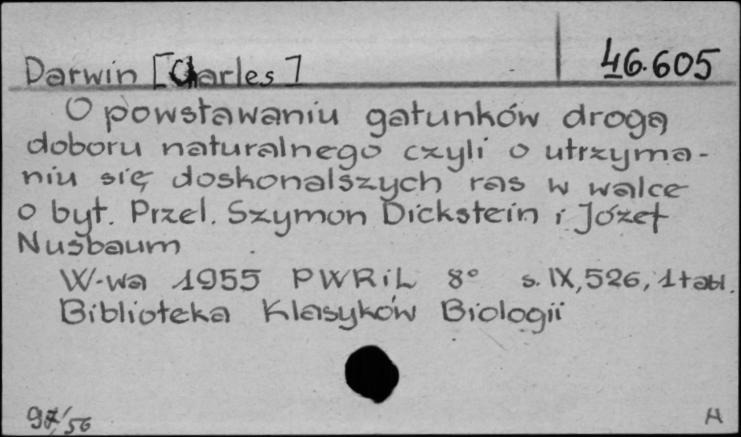 Darwin [Charles] 46.605
O powstawaniu gatunków drogą
doboru naturalnego czyli o utrzyma-
niu się doskonalszych ras w walce
o byt. Przel. Szymon Dickstein i Józef
Nusbaum
W-wa 1955 PWRiL 8° s. IX, 526, 1 tabl.
Biblioteka Klasyków Biologii
97/56 H